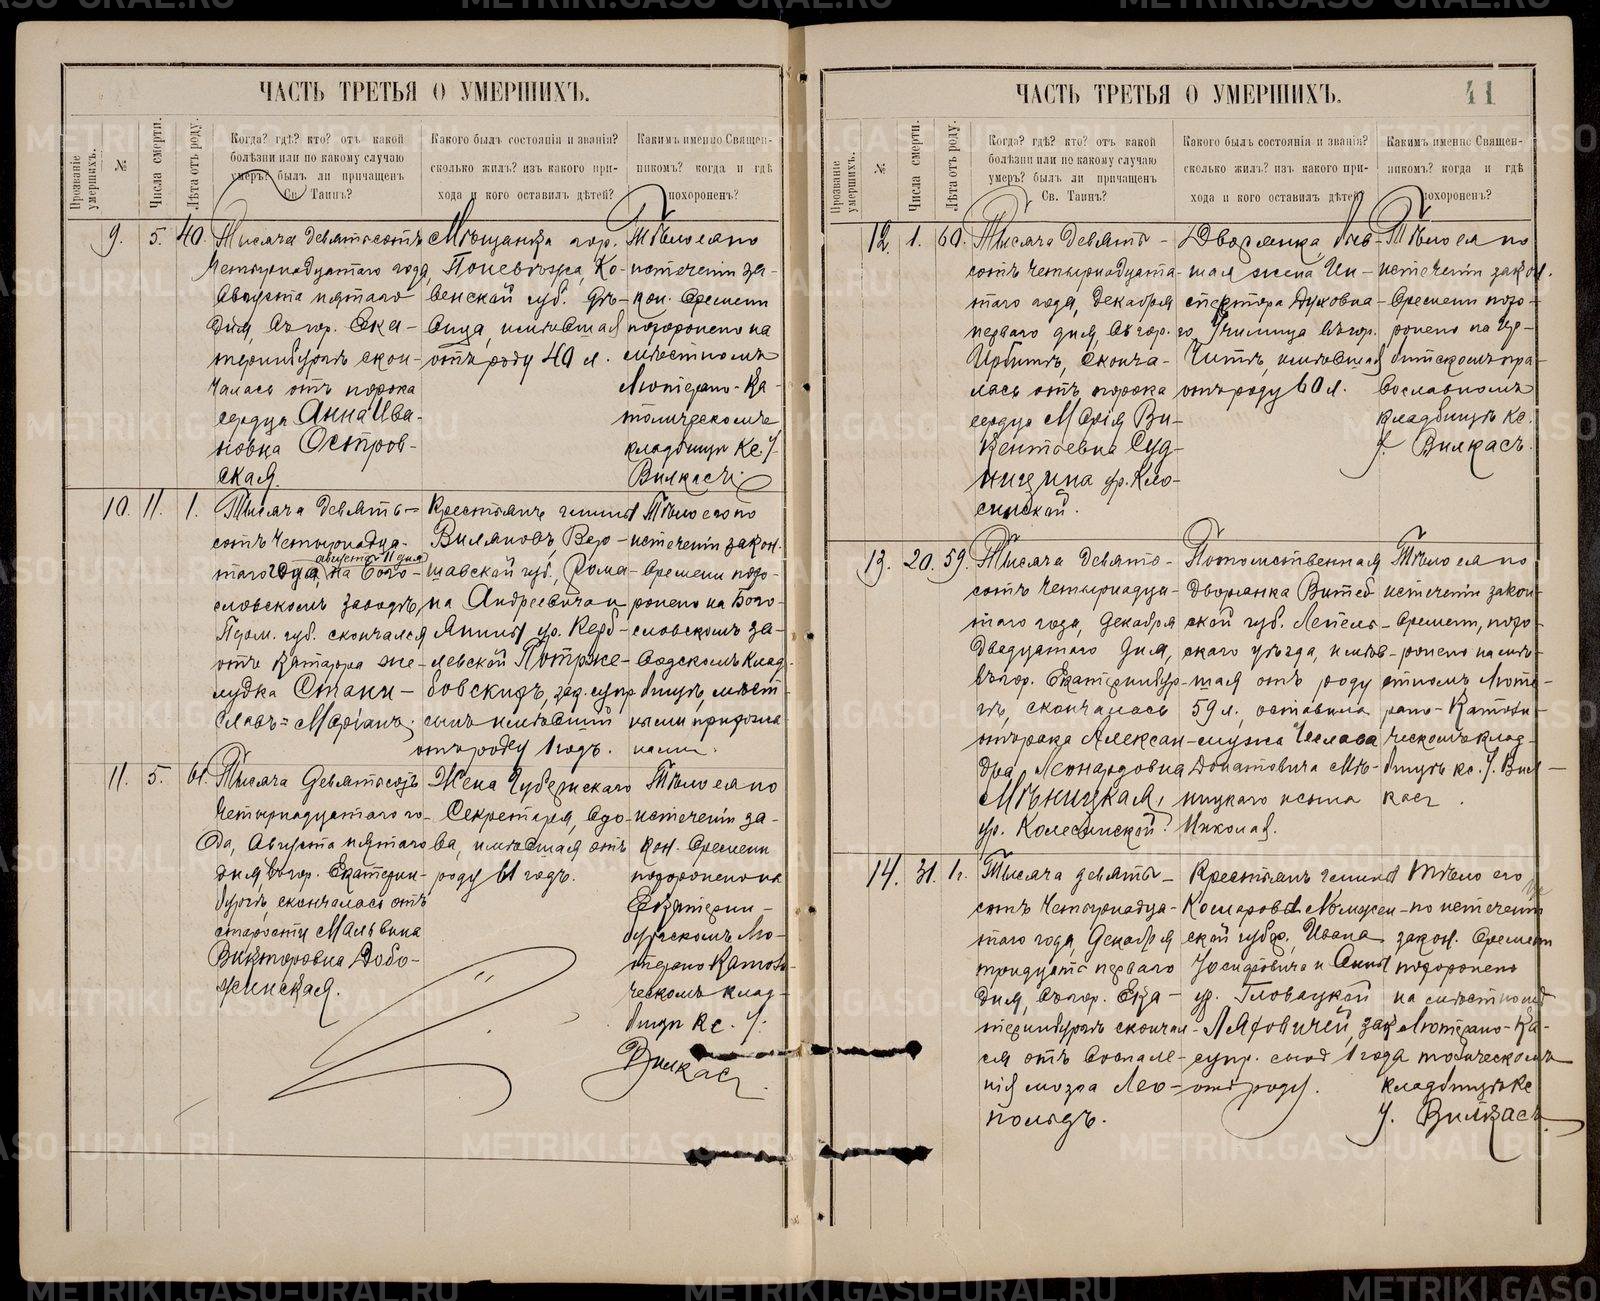 ЧАСТЬ ТРЕТЬЯ О УМЕРШИХЪ.
Прозваніе умершихъ.
№
Числа смерти.
Лѣта отъ роду.
Когда? гдѣ? кто? отъ какой
болѣзни или по какому случаю
умеръ? былъ ли причащенъ
Св. Таинъ?
Какого былъ состоянія и званія?
сколько жилъ? изъ какого при-
хода и кого оставилъ дѣтей?
Какимъ именно Священ-
никомъ? когда и гдѣ
похороненъ?
9. 5. 40.
Тысяча девятьсотъ
четырнадцатаго года,
Августа пятаго
дня, въ гор. Ека-
теринбургѣ скон-
чалась отъ порока
сердца Анна Ива-
новна Остров-
ская.
Мѣщанка гор.
Поневѣжа, Ко-
венской губ. дѣ-
вица, имѣвшая
отъ роду 40 л.
Тѣло ея по
истеченіи за-
кон. времени
похоронено на
мѣстномъ
Лютерано-Ка-
толическомъ
кладбищѣ Кс. І.
Вилкасъ.
10. 11. 1.
Тысяча девять-
сотъ четырнадца-
августа 11 дня
таго года, на Бого-
словскомъ заводѣ,
Перм. губ. скончался
отъ катарра же-
лудка Стани-
славъ=Маріанъ.
Крестьянъ гмины
Виляновъ, Вар-
шавской губ., Рома-
на Андреевича и
Анны ур. Керб-
левской Потрже-
бовскихъ, зак. супр.
сынъ имѣвшій
отъ роду 1 годъ.
Тѣло его по
истеченіи закон.
времени похо-
ронено на Бого-
словскомъ за-
водскомъ клад-
бищѣ, мѣст-
ными прихожа-
нами.
11. 5. 61.
Тысяча девятьсотъ
четырнадцатаго го-
да, Августа пятаго
дня, въ гор. Екатерин-
бургѣ, скончалась отъ
старости Мальвина
Викторовна Добо-
жинская.
Жена Губернскаго
Секретаря, вдо-
ва, имѣвшая отъ
роду 61 годъ.
Тѣло ея по
истеченіи за-
кон. времени
похоронено на
Екатерин-
бургскомъ Лю-
терано Католи-
ческомъ клад-
бищѣ Кс. І.
Вилкасъ.
ЧАСТЬ ТРЕТЬЯ О УМЕРШИХЪ.
41
Прозваніе умершихъ.
№
Числа смерти.
Лѣта отъ роду.
Когда? гдѣ? кто? отъ какой
болѣзни или по какому случаю
умеръ? былъ ли причащенъ
Св. Таинъ?
Какого былъ состоянія и званія?
сколько жилъ? изъ какого при-
хода и кого оставилъ дѣтей?
Какимъ именно Священ-
никомъ? когда и гдѣ
похороненъ?
12. 1. 60.
Тысяча девять-
сотъ четырнадца-
таго года, Декабря
перваго дня, въ гор.
Ирбитѣ, сконча-
лась отъ порока
сердца Марія Ви-
кентьевна Суд-
ницына ур. Кло-
синской.
Дворянка, быв-
шая жена Ин-
спектора Духовна-
го Училища въ гор.
Читѣ, имѣвшая
отъ роду 60 л.
Тѣло ея по
истеченіи закон.
времени похо-
ронено на Ир-
битскомъ пра-
вославномъ
кладбищѣ Кс.
І. Вилкасъ.
13. 20. 59.
Тысяча девять-
сотъ четырнадца-
таго года, Декабря
двадцатаго дня,
въ гор. Екатеринбур-
гѣ, скончалась
отъ рака Алексан-
дра Леонардовна
Мѣницкая,
ур. Колесинской.
Потомственная
дворянка Витеб-
ской губ. Лепель-
скаго уѣзда, имѣв-
шая отъ роду
59 л., оставила
мужа Чеслава
Донатовича Мѣ-
ницкаго и сына
Николая.
Тѣло ея по
истеченіи закон-
времени, похо-
ронено на мѣ-
стномъ Люте-
рано-Католи-
ческомъ клад-
бищѣ кс. І. Вил-
касъ.
14. 31. 1 г.
Тысяча девять-
сотъ четырнадца-
таго года, Декабря
тридцать перваго
дня, въ гор. Ека-
теринбургѣ скончал-
ся отъ воспале-
нія мозга Лео-
польдъ.
Крестьянъ гмины
Комарово Ломжин-
ской губер., Ивана
Іосифовича и Анны
ур. Гловацкой
Ляховичей, зак.
супр. сынъ 1 года
отъ роду.
Тѣло его
по истеченіи
закон. времени
похоронено
на мѣстномъ
Лютерано-Ка-
толическомъ
кладбищѣ Кс
І. Вилкасъ.
METRIKI.GASO-URAL.RU